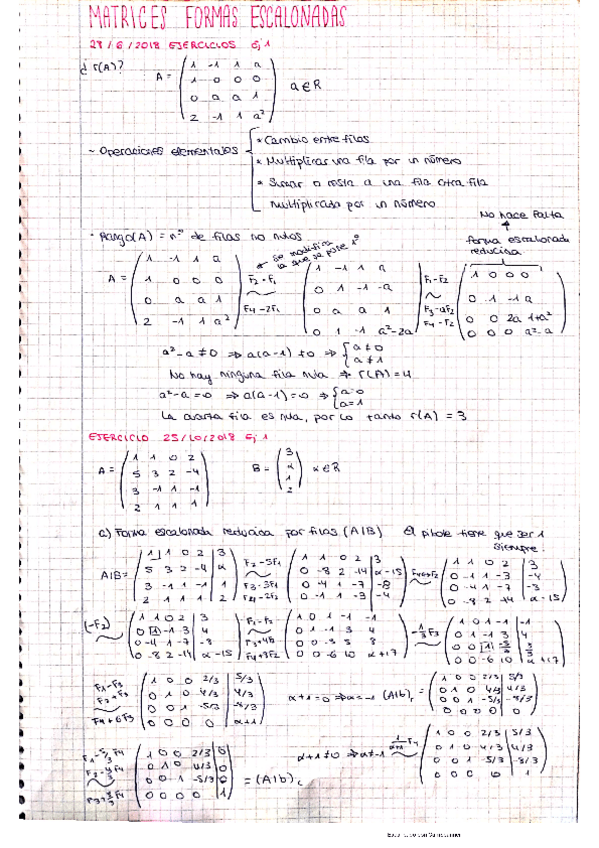 MATRICES FORMAS ESCALONADAS
28/6/2018 EJERCICIOS Ej 1
¿r(A)?
A = (1 -1 1 a
1 0 0 0
0 a a 1
2 -1 1 a²) a∈R
- Operaciones elementales
* Cambio entre filas
* Multiplicar una fila por un número
* Sumar o resta a una fila otra fila
multiplicada por un número
No hace falta
- Rango(A) = nº de filas no nulos
* Se modifica
la que se pone 1º
forma escalonada
reducida
A = (1 -1 1 a
1 0 0 0
0 a a 1
2 -1 1 a²)
F2-F1
F4-2F1
(1 -1 1 a
0 1 -1 -a
0 a a 1
0 1 -1 a²-2a)
F1-F2
F3-aF2
F4-F2
(1 0 0 0
0 1 -1 a
0 0 2a 1+a²
0 0 0 a²-a)
a²-a≠0 ⇒ a(a-1)≠0 ⇒ {a≠0
a≠1
No hay ninguna fila nula ⇒ r(A)=4
a²-a=0 ⇒ a(a-1)=0 ⇒ {a=0
a=1
La cuarta fila es nula, por lo tanto r(A) = 3
EJERCICIO 25/10/2018 Ej 1
A = (1 1 0 2
5 3 2 -4
3 -1 1 -1
2 1 1 1)
B = (3
α
1
2) α∈R
a) Forma escalonada reducida por filas (A|B) El pibote tiene que ser 1
siempre.
A|B = (1 1 0 2 | 3
5 3 2 -4 | α
3 -1 1 -1 | 1
2 1 1 1 | 2)
F2-5F1
F3-3F1
F4-2F1
(1 1 0 2 | 3
0 -8 2 -14 | α-15
0 -4 1 -7 | -8
0 -1 1 -3 | -4)
F4↔F2
(1 1 0 2 | 3
0 -1 1 -3 | -4
0 -4 1 -7 | -8
0 -8 2 -14 | α-15)
(-F2)
(1 1 0 2 | 3
0 1 -1 3 | 4
0 -4 1 -7 | -8
0 -8 2 -14 | α-15)
F1-F2
F3+4F2
F4+8F2
(1 0 1 -1 | -1
0 1 -1 3 | 4
0 0 -3 5 | 8
0 0 -6 10 | α+17)
-1/3 F3
(1 0 1 -1 | -1
0 1 -1 3 | 4
0 0 1
0 0 -6 10 | α+17)
F1-F3
F2+F3
F4+6F3
(1 0 0 2/3 | 5/3
0 1 0 4/3 | 4/3
0 0 1 -5/3 | -8/3
0 0 0 0 | α+1)
α+1=0 ⇒ α=-1 (A|b)r = (1 0 0 2/3 | 5/3
0 1 0 4/3 | 4/3
0 0 1 -5/3 | -8/3
0 0 0 0 | 0)
α+1≠0 ⇒ α≠-1
1/α+1 F4
(1 0 0 2/3 | 5/3
0 1 0 4/3 | 4/3
0 0 1 -5/3 | -8/3
0 0 0 0 | 1)
F1-5/3 F4
F2-4/3 F4
F3+8/3 F4
(1 0 0 2/3 | 0
0 1 0 4/3 | 0
0 0 1 -5/3 | 0
0 0 0 0 | 1) = (A|b)r